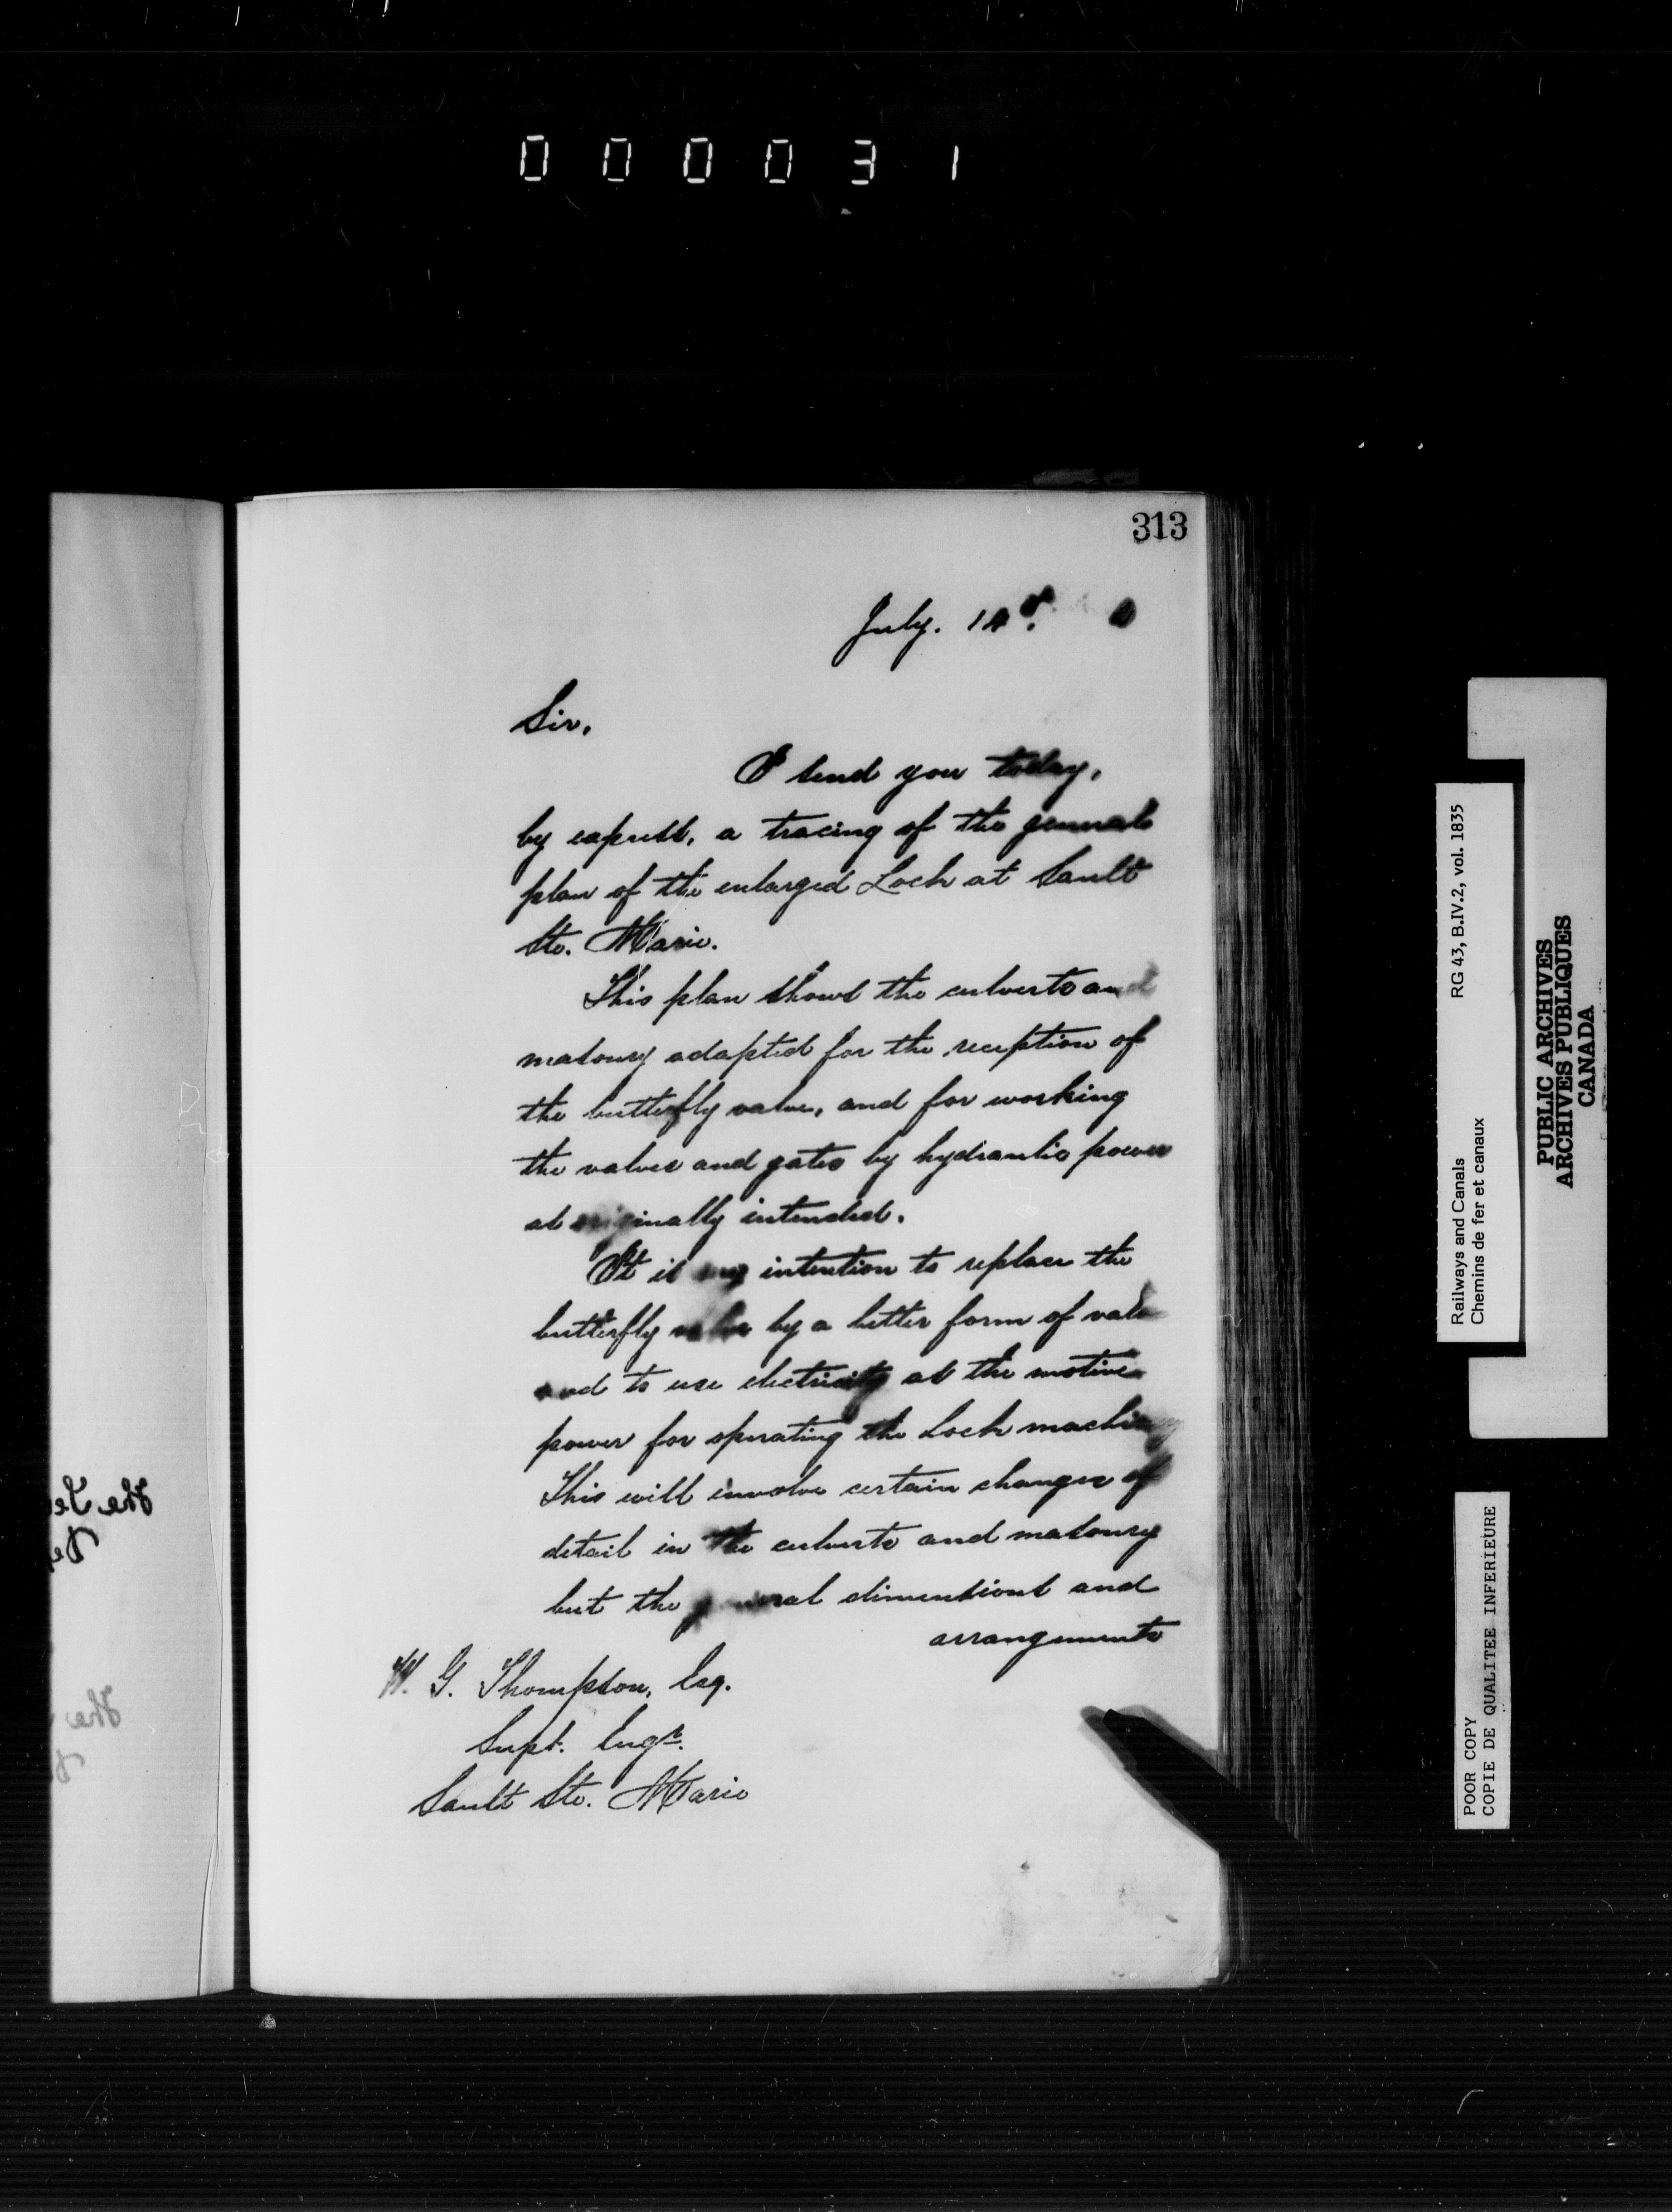 000031
313
July. 14
Sir,
I send you today,
by express, a tracing of the general
plan of the enlarged Lock at Sault
Ste. Marie.
This plan shows the culverts and
masonry adapted for the reception of
the butterfly valve, and for working
the valves and gates by hydraulic power
as originally intended.
It is my intention to replace the
butterfly valve by a better form of valve
and to use electricity as the motive
power for operating the Lock machinery
This will involve certain changes of
detail in the culverts and masonry
but the general dimensions and
arrangements
W. G. Thompson, Esq.
Supt. Engr.
Sault Ste. Marie
Railways and Canals RG 43, B.IV.2, vol. 1835
Chemins de fer et canaux
PUBLIC ARCHIVES
ARCHIVES PUBLIQUES
CANADA
POOR COPY
COPIE DE QUALITEE INFERIEURE